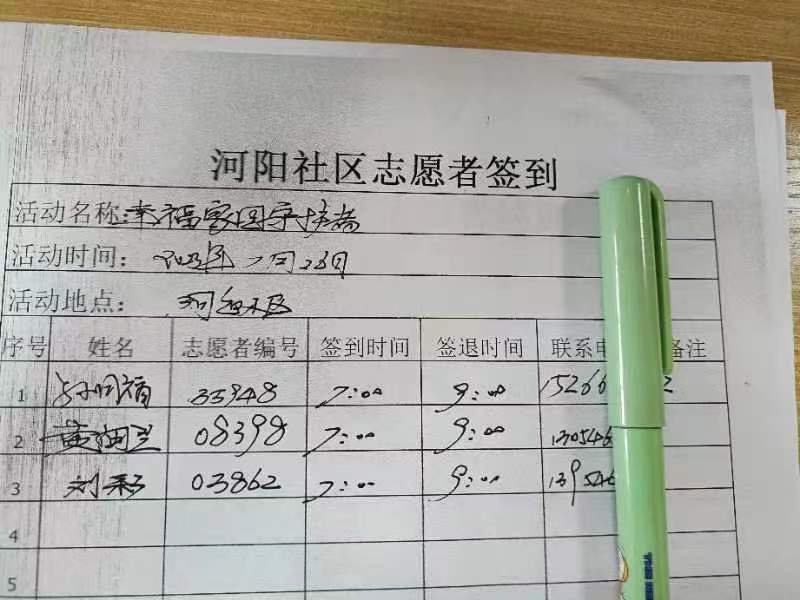 河阳社区志愿者签到
活动名称:幸福家园守护者
活动时间: 月28日
活动地点: 河阳社区
序号 姓名 志愿者编号 签到时间 签退时间 联系电 备注
1 33948 7:00 9:00 15266 2
2 黄 兰 08398 7:00 9:00 130546
3 刘 03862 7:00 9:00 139546
4
5